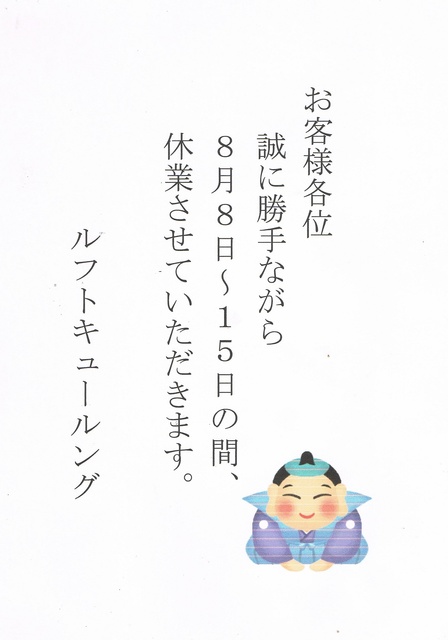 お客様各位
誠に勝手ながら
８月８日～１５日の間、
休業させていただきます。
ルフトキュールング